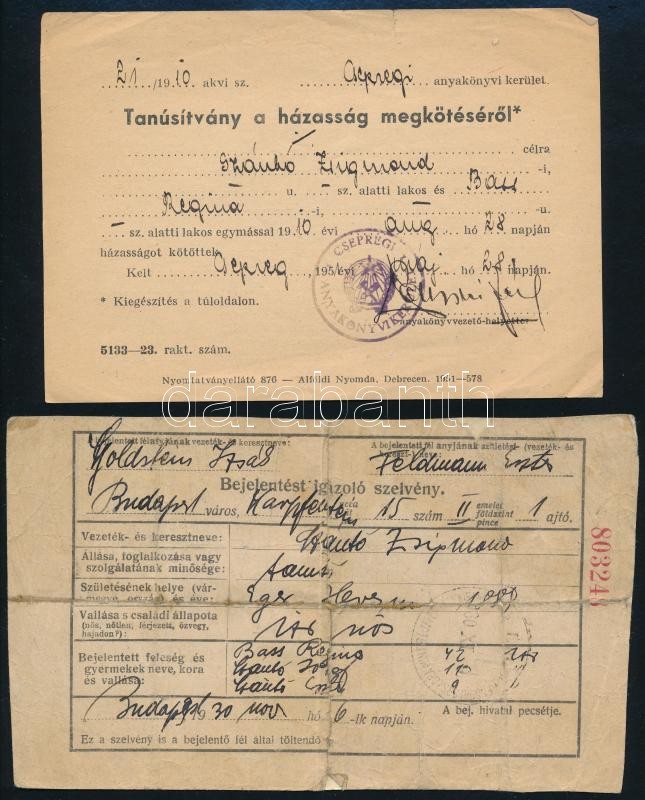 21 /1910 akvi sz. Csepregi anyakönyvi kerület
Tanúsítvány a házasság megkötéséről*
célra
Szántó Zsigmond -i,
u. – sz. alatti lakos és Bass
Regina -i, -u.
– sz. alatti lakos egymással 1910 évi aug hó 28 napján
házasságot kötöttek
Kelt Csepreg, 1951 évi máj. hó 28 napján.
CSEPREGI ANYAKÖNYVI KERÜLET
* Kiegészítés a túloldalon.
anyakönyvvezető-helyettes
5133—23. rakt. szám.
Nyomtatványellátó 876 — Alföldi Nyomda, Debrecen. 1951—578
darabanth
A bejelentett fél atyjának vezeték- és keresztneve:
A bejelentett fél anyjának születési- (vezeték- és kereszt-) neve:
Goldstein Izsák
Feldmann Eszter
Bejelentést igazoló szelvény.
Budapest város, Karpfenstein utca 15 szám II emelet földszint pince 1 ajtó.
Vezeték- és keresztneve: Szántó Zsigmond
Állása, foglalkozása vagy
szolgálatának minősége:
Születésének helye (vármegye, ország) és éve: Eger Heves m
Vallása s családi állapota
(nős, nőtlen, férjezett, özvegy,
hajadon?): izr nős
Bejelentett feleség és
gyermekek neve, kora
és vallása:
Bass Regina 42 izr
Szántó
Szántó 9 "
803245
Budapest 1930 nov hó 6-ik napján.
A bej. hivatal pecsétje.
Ez a szelvény is a bejelentő fél által töltendő